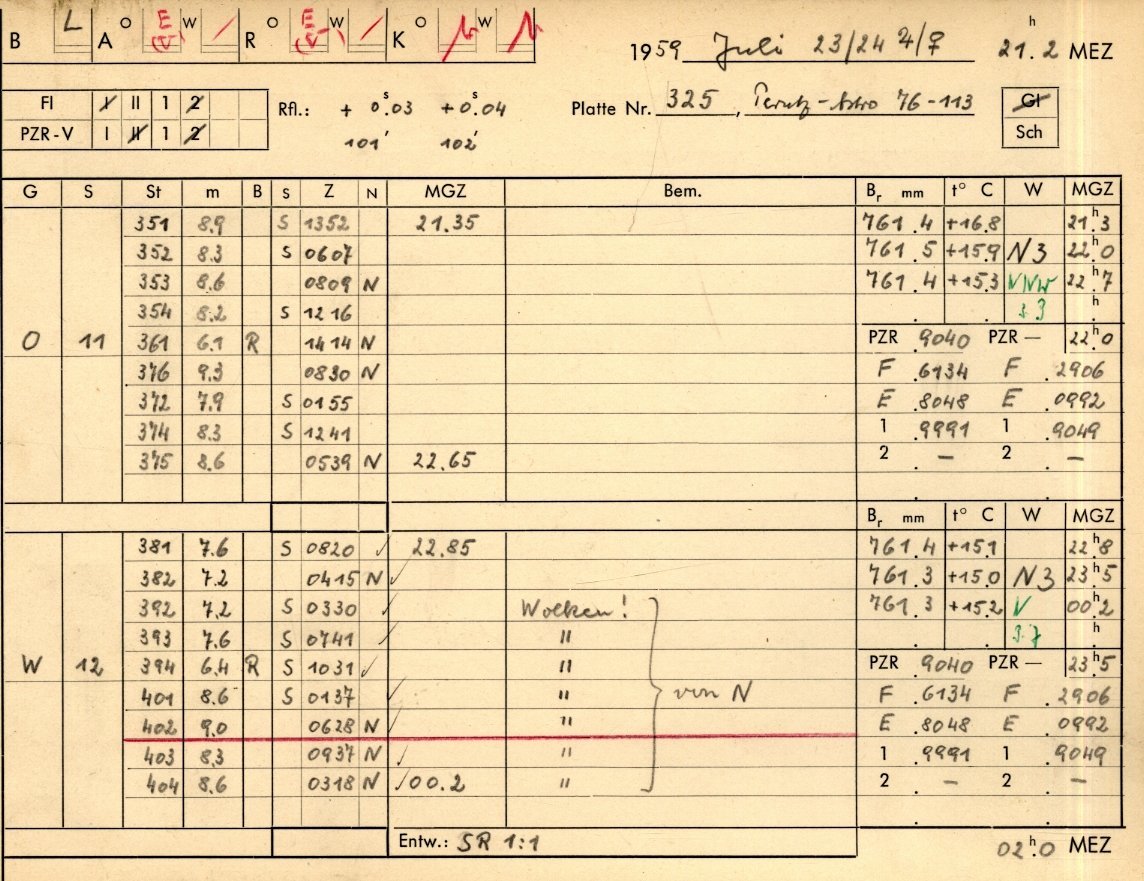 B L A O E(V) W / R O E(V) W / K O N W N
1959 Juli 23/24 21.2 h MEZ
FI I II 1 2 Rfl.: + 0.s03 +0.s04 Platte Nr. 325, Perutz-Astro 76-113 Gl
PZR-V I II 1 2 101' 102' Sch
G S St m B S Z N MGZ Bem. Br mm t° C W MGZ
351 8.9 S 1352 21.35 761.4 +16.8 21h.3
352 8.3 S 0607 761.5 +15.9 N3 22h.0
353 8.6 0809 N 761.4 +15.3 NNW 22h.7
354 8.2 S 1216 3.3 h
O 11 361 6.1 R 1414 N PZR .9040 PZR — 22h.0
376 9.3 0830 N F .6134 F .2906
372 7.9 S 0155 E .8048 E .0992
374 8.3 S 1241 1 .9991 1 .9049
375 8.6 0539 N 22.65 2 . – 2 . –
Br mm t° C W MGZ
381 7.6 S 0820 ✓ 22.85 761.4 +15.1 22h.8
382 7.2 0415 N ✓ 761.3 +15.0 N3 23h.5
392 7.2 S 0330 ✓ Wolken! 761.3 +15.2 V 00h.2
393 7.6 S 0741 ✓ " 3.7 h
W 12 394 6.4 R S 1031 ✓ " PZR .9040 PZR — 23h.5
401 8.6 S 0137 ✓ " von N F .6134 F .2906
402 9.0 0628 N ✓ " E .8048 E .0992
403 8.3 0937 N ✓ " 1 .9991 1 .9049
404 8.6 0318 N ✓ 00.2 " 2 . – 2 . –
Entw.: SR 1:1 02h.0 MEZ